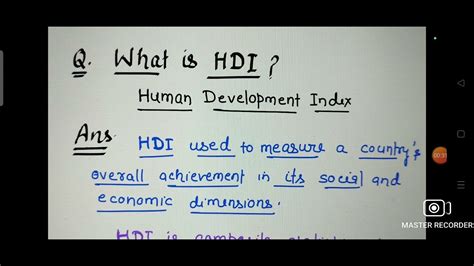 Q. What is HDI?
Human Development Index
Ans. HDI used to measure a country's
overall achievement in its social and
economic dimensions.
HDI is composite
00:31
MASTER RECORDER